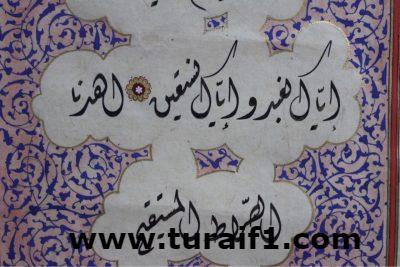 إياك نعبد و إياك نستعين اهدنا
الصراط المستقيم
www.turaif1.com